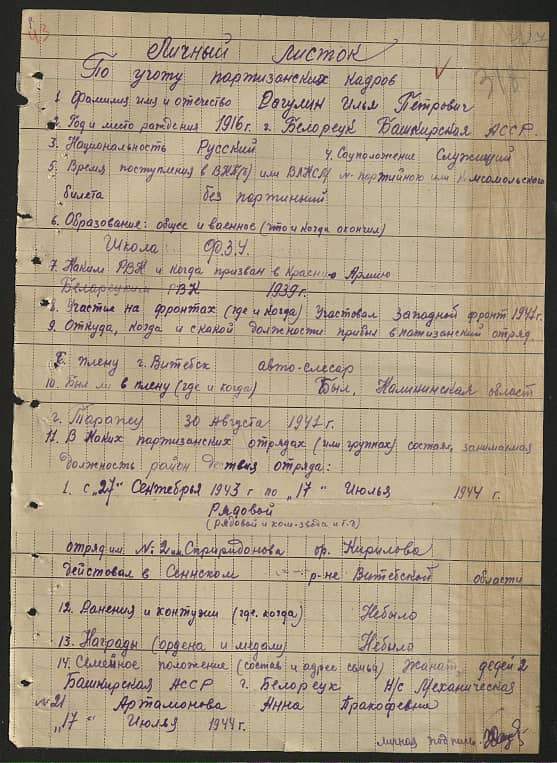 43
Личный листок
По учоту партизанских кадров
1. Фамилия имя и отечество Рагулин Илья Петрович
2. Год и место рождения 1916 г. г. Белорецк Башкирская АССР.
3. Национальность Русский 4. Соцположение Служищий
5. Время поступления в ВКП(б) или ВЛКСМ № партийного или комсомольского
билета без партииный
6. Образование: общее и военное (что и когда окончил)
Школа Ф.З.У.
7. Каким РВК и когда призван в Красную Армию
Белорецким РВК 1939 г.
8. Участие на фронтах (где и когда) Участовал Западной фронт 1941 г.
9. Откуда, когда и с какой должности прибыл в патизанский отряд
Плену г. Витебск авто-слесар
10. Был ли в плену (где и когда) Был, Калининская област
г. 30 Августа 1941 г.
11. В каких партизанских отрядах (или группах) состоял, занимаемая
должность район отряда:
1. с "27" Сентебрья 1943 г по "17" Июлья 1944 г.
Рядовой
(рядовой и ком-звена и т.д)
отряд им. № 2 им. Спиридонова бр. Кирилова
Действовал в Сеннском р-не Витебской области
12. Ранения и контузии (где. когда) Небыло
13. Награды (ордена и медали) Небыло
14. Семейное положение (состав и адрес семьи) Жанат, дедей 2
Башкирская АССР г. Белорецк Н/с Механическая
№ 21 Артамонова Анна Пракофевна
"17" Июлья 1944 г.
личная подпись